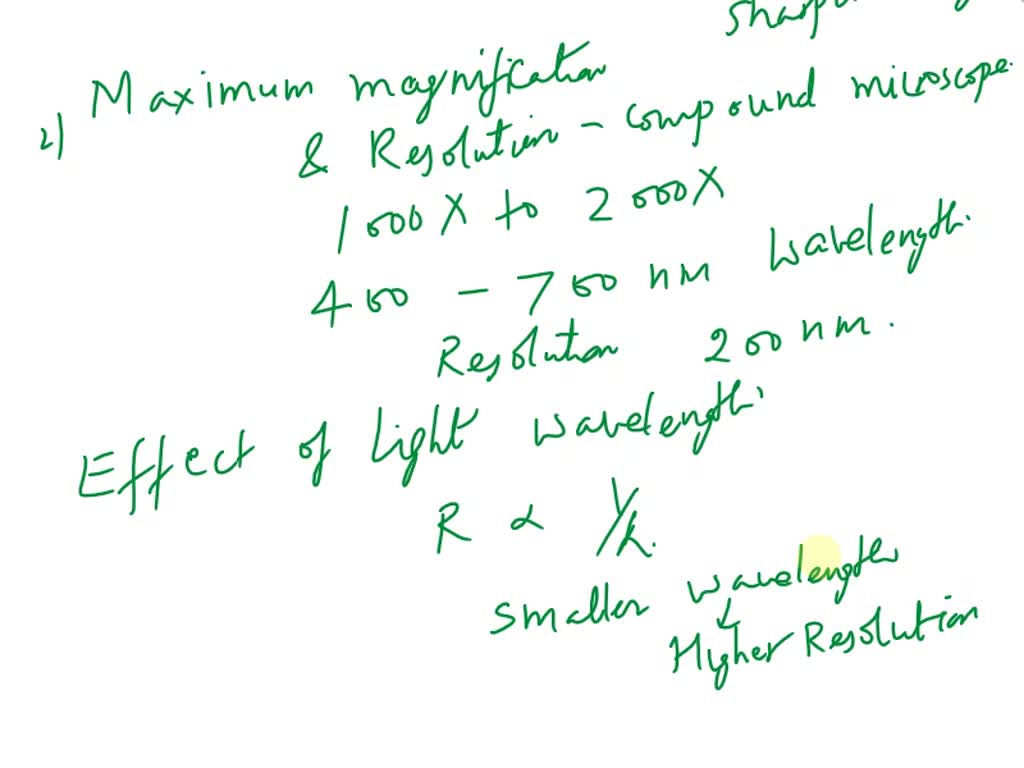 2) Maximum magnification
& Resolution - compound microscope.
1000X to 2000X
400 - 700 nm wavelength.
Resolution 200 nm.
Effect of Light wavelength.
R ∝ 1/λ.
smaller wavelength
↓
Higher Resolution